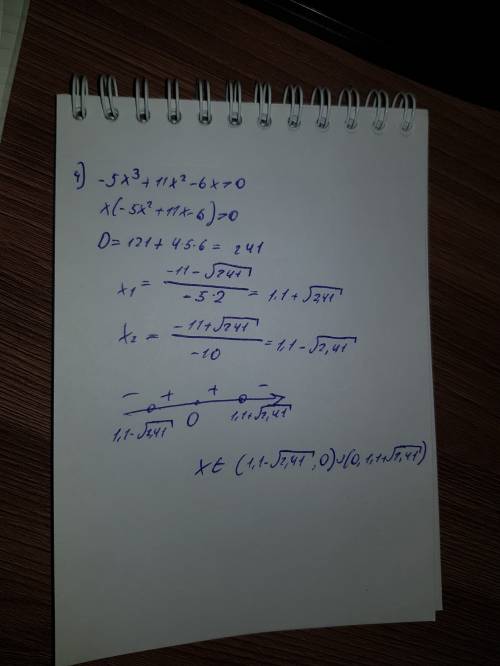 4) -5x³+11x²-6x>0
x(-5x²+11x-6)>0
D=121+45·6= 241
x₁ = (-11-√241)/(-5·2) = 1,1+√2,41
x₂ = (-11+√241)/(-10) = 1,1-√2,41
- + + -
1,1-√2,41 0 1,1+√2,41
x∈ (1,1-√2,41, 0)∪(0, 1,1+√2,41)